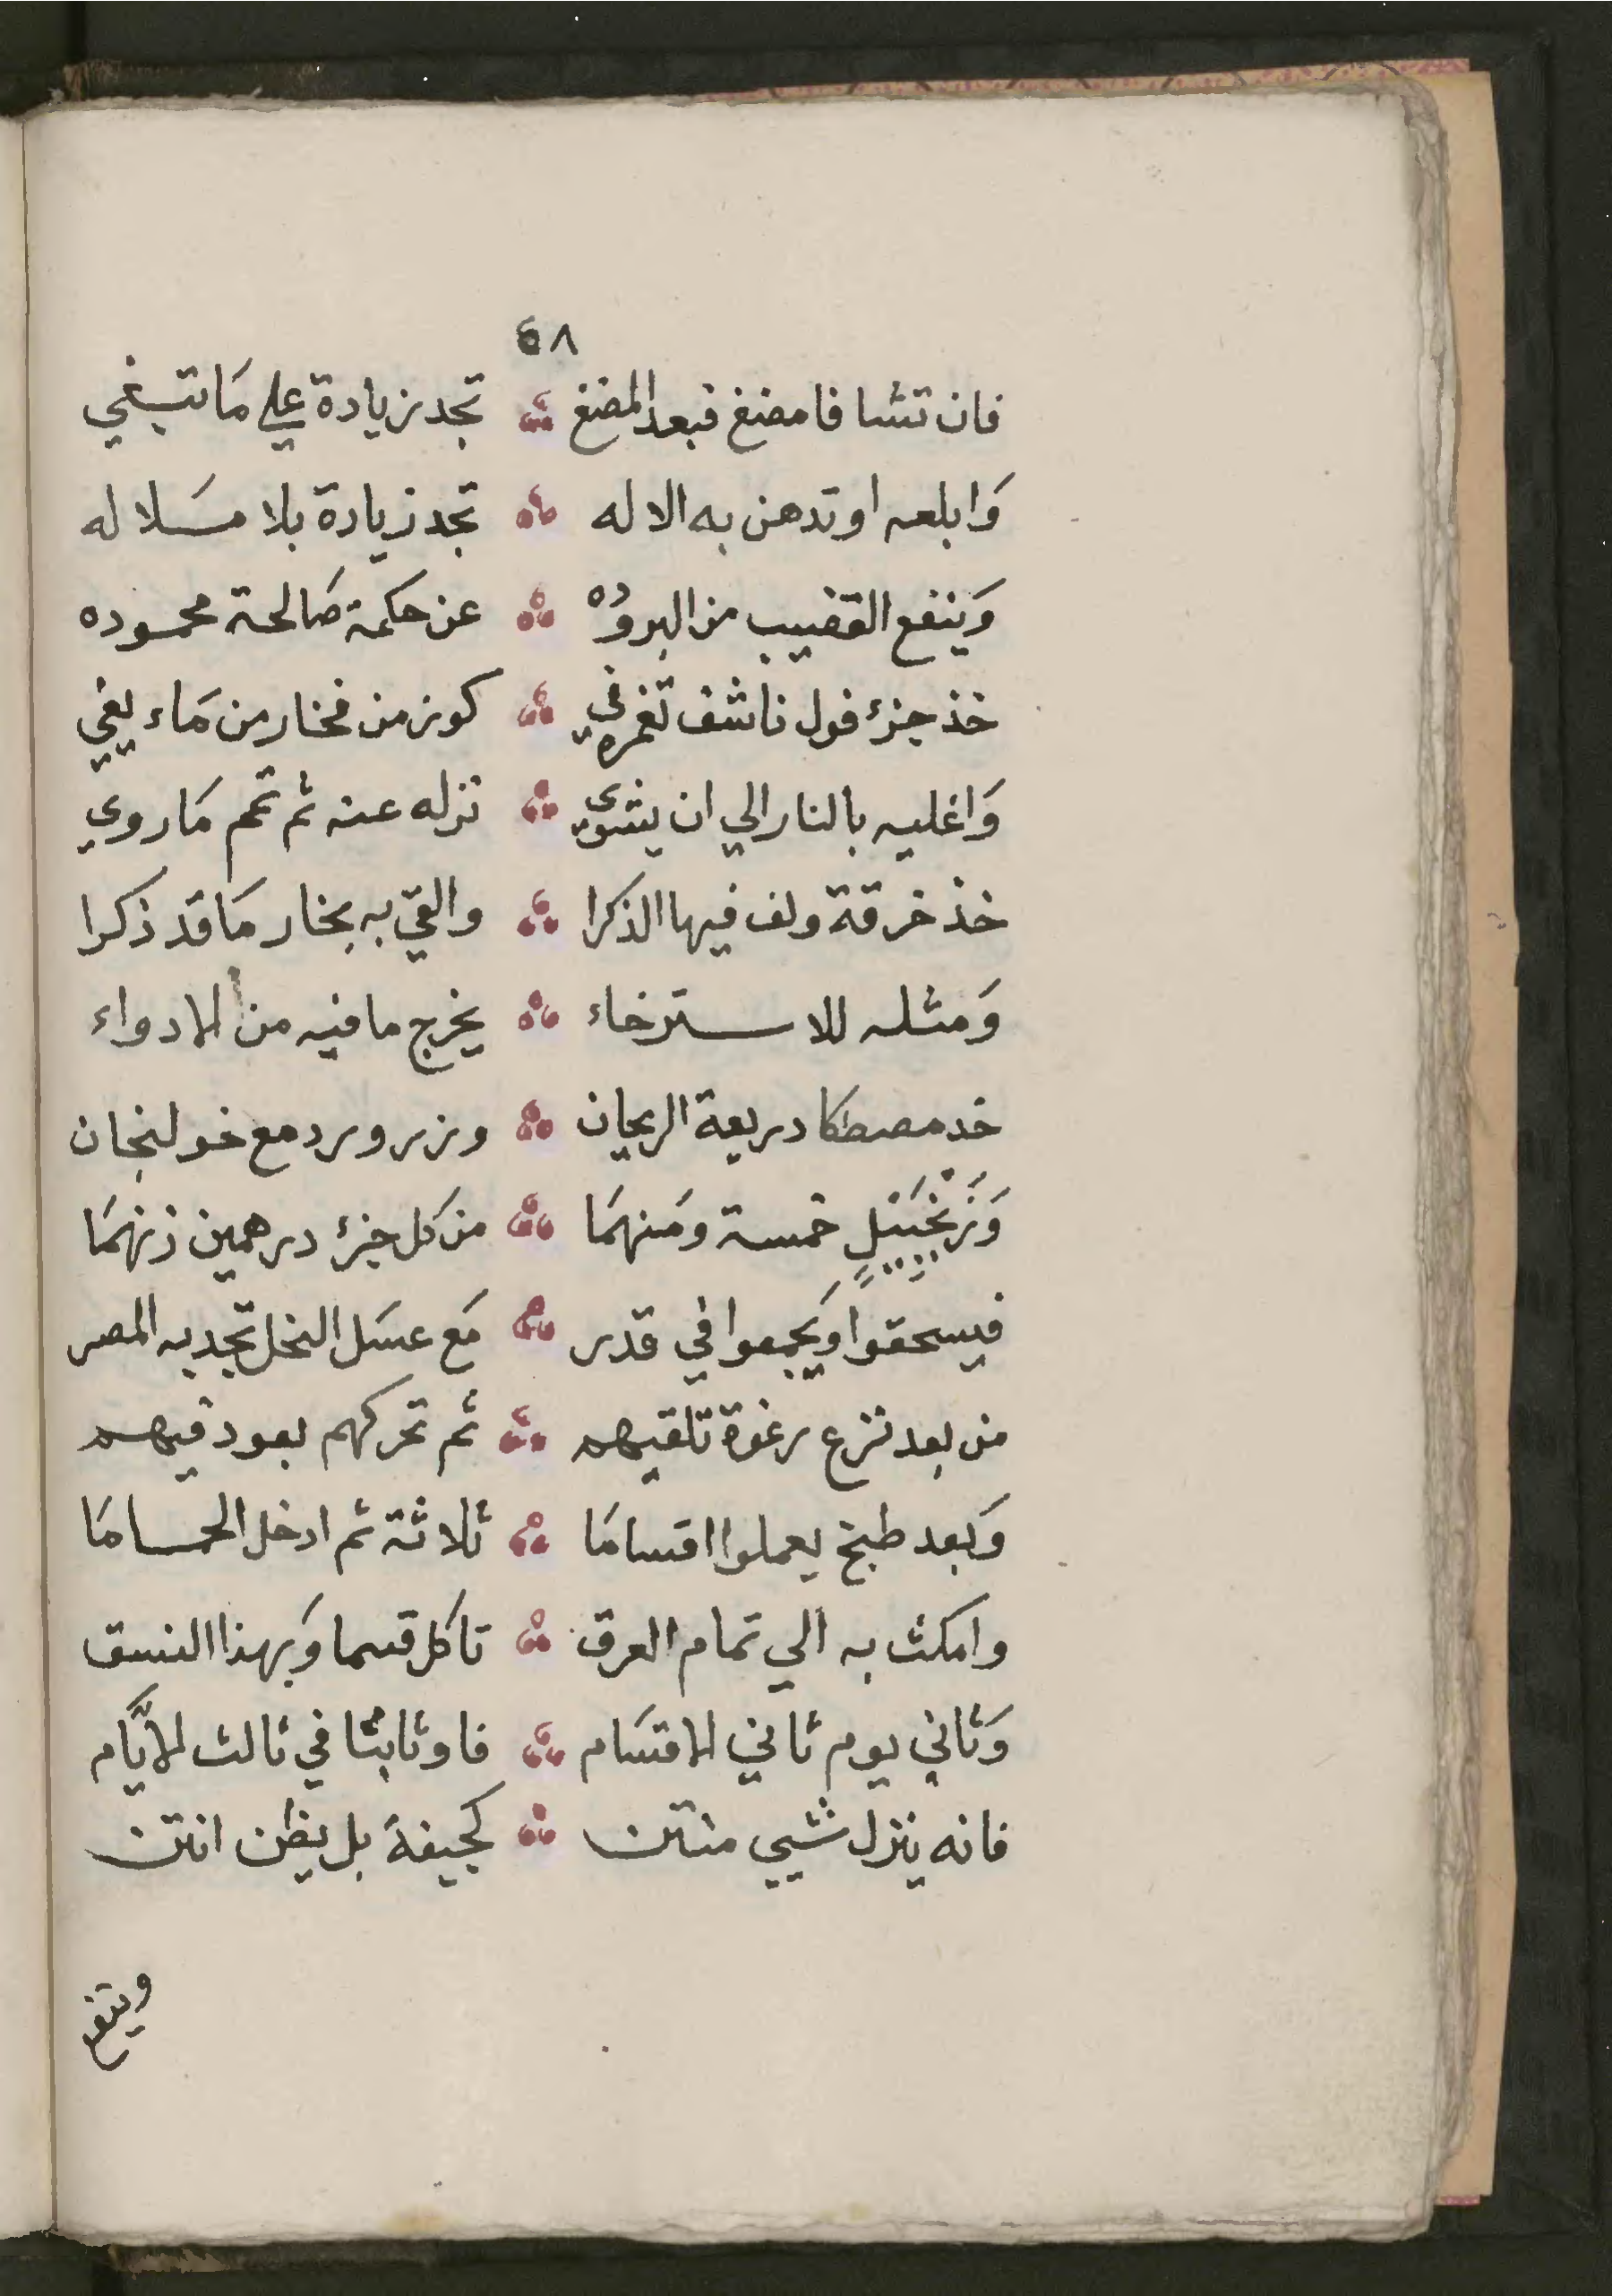 ٤٨
فان تشا فامضغ فبعد المضغ تجد زيادة علي مَا تبتغي
وَابلعه او تدهن به الاله تجد زيادة بلا مسَلاله
وَينفع القضيب من البروُده عن حكمة صَالحة محموده
خذ جزئ فول ناشف تغمره في كوز من فخار من مَاء يفي
وَاغليه بالنار الي ان يشوي تزله عنه ثم تمم مَا روي
خذ خرقة ولف فيها الذكرا والقي به بخار مَا قد ذكرا
وَمثله للاسترخاء يخرج ما فيه من الادواء
خد مصطكا دريعة الريحان وزر ورد مع خولنجان
وَزَنْجَبَيْلٍ خمسة وَمنهمَا من كل جزئ درهمين زنهمَا
فيسحقوا وَيجمعوا في قدر مَع عسَل النحل تجد به المصر
من بعد نزع رغوة تلقيهم ثم تحركهم بعود فيهم
وَبعد طبخ يعملوا اقسامَا ثلاثة ثم ادخل الحمامَا
وامكث به الي تمام العرق تاكل قسما وَبهذا النسق
وَثاني يوم ثاني الاقسَام فاوثابثا في ثالث الايَّام
فانه ينزل شيي منتن كجيفة بل يظن انتن
وينفع